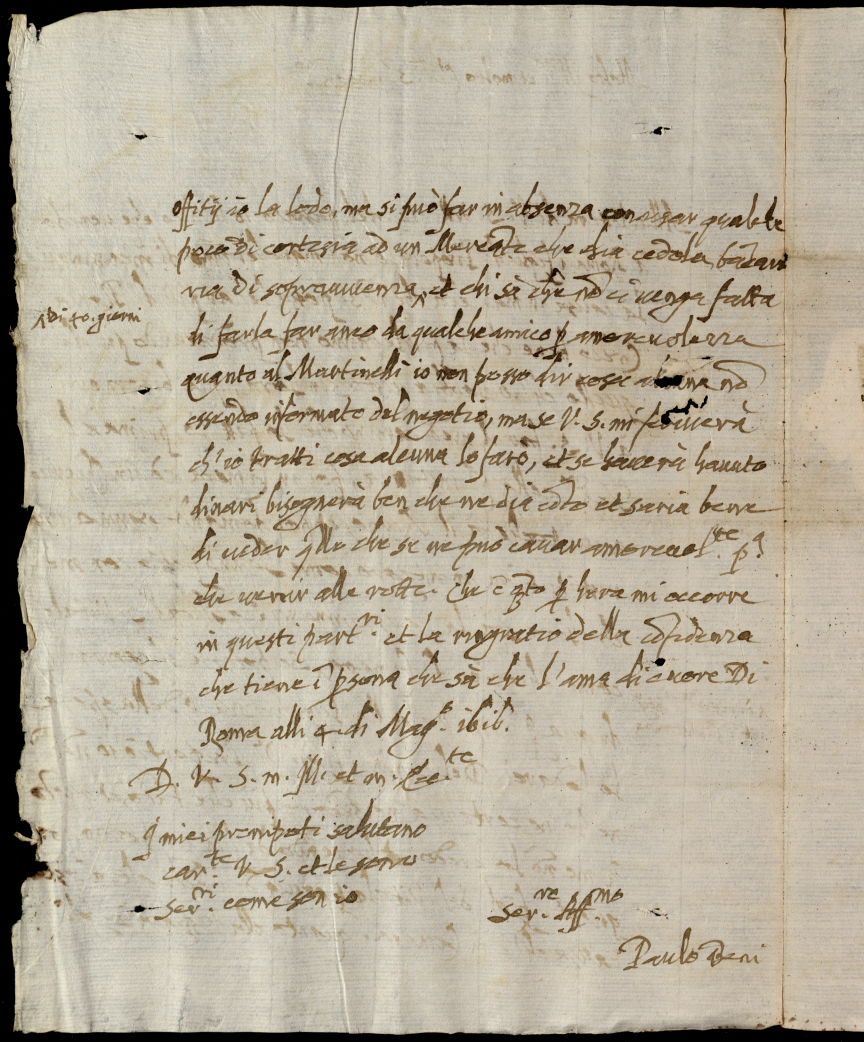 offitij io la lodo, ma si può far in absenza con usar qualche
poco di cortesia ad un Mercate che dia cedola bacaria
ria di sopravivenza ^ et chi sà che nō ci venga fatta
^ di 40. giorni
di farla far anco da qualche amico ꝑ amorevolezza
quanto al Martinelli io non posso dir cosa alcuna nō
essendo informato del negotio, ma se V. S. mi scriverà
ch'io tratti cosa alcuna lo farò, et se haverà havuto
dinari bisognerà ben che ne dia cōto et saria bene
di veder qlle che se ne può cavar amorevol.te pa
che venir alle rotte. che è qto ꝑ hora mi occorre
in questi part.ri et la ringratio della cōfidenza
che tiene ī ꝑsona che sà che l'ama di cuore Di
Roma alli 4. di Mag.o 1616.
D. V. S. m. Ill. et m.
I miei pronipoti salutano
car.te V. S. et le sono
ser.ri come son io
Ser.re Aff.mo
Paulo